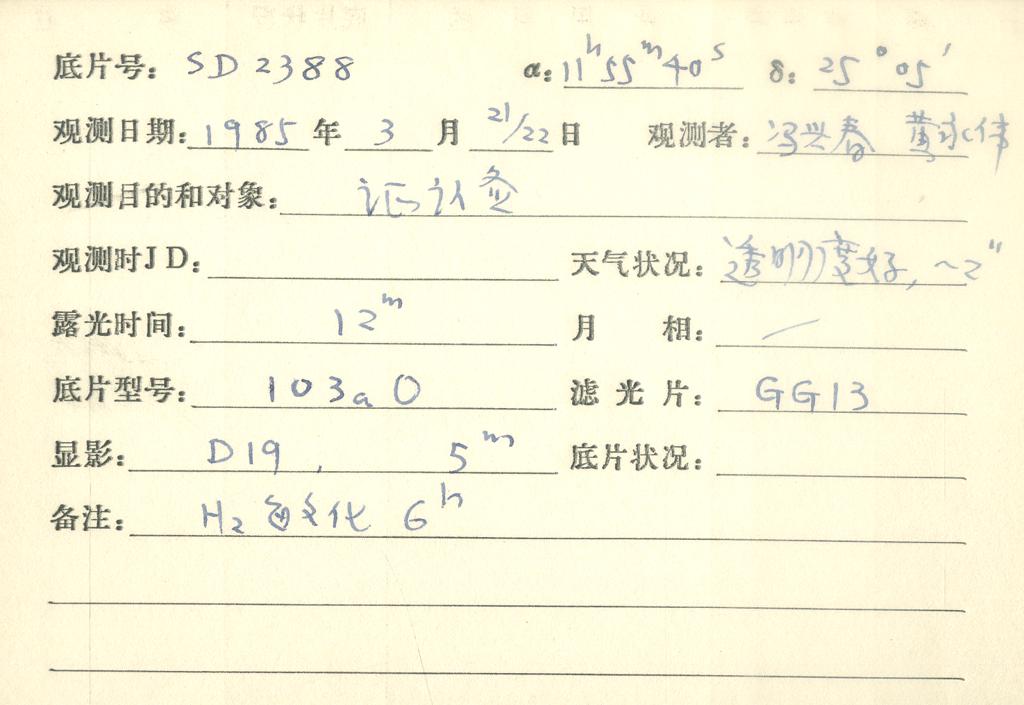 底片号: SD2388 α: 11ʰ55ᵐ40ˢ δ: 25°05′
观测日期: 1985年 3月 21/22日 观测者: 冯兴春 黄永伟
观测目的和对象: 证认
观测时JD: 天气状况: 透明度好, ~2″
露光时间: 12ᵐ 月 相: —
底片型号: 103aO 滤光片: GG13
显影: D19, 5ᵐ 底片状况:
备注: H₂ 敏化 6ʰ